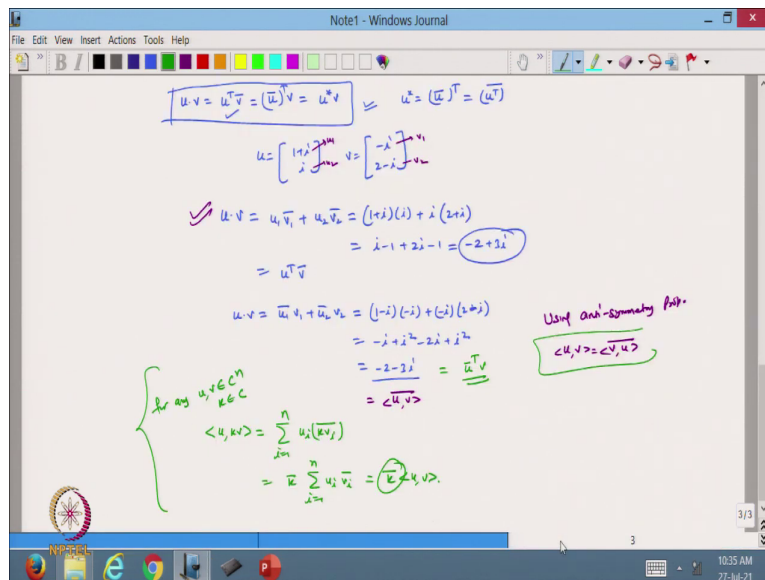 Note1 - Windows Journal
File Edit View Insert Actions Tools Help
u·v = uᵀv̅ = (u̅)ᵀv = u*v
u* = (u̅)ᵀ = (u̅ᵀ)
u = [1+i, i] u₁ u₂ v = [-i, 2-i] v₁ v₂
u·v = u₁v̅₁ + u₂v̅₂ = (1+i)(i) + i(2+i)
= i-1+2i-1 = -2+3i
= uᵀv̅
u·v = u̅₁v₁ + u̅₂v₂ = (1-i)(-i) + (-i)(2-i)
= -i+i²-2i+i²
= -2-3i = u̅ᵀv
= <u,v>‾
Using anti-symmetry Prop.
<u,v> = <v,u>‾
for any u,v ∈ Cⁿ
K ∈ C
<u,kv> = Σⁿᵢ₌₁ uᵢ(k̅v̅ᵢ)
= k̅ Σⁿᵢ₌₁ uᵢv̅ᵢ = k̅<u,v>.
3/3
3
NPTEL
10:35 AM
27-Jul-21